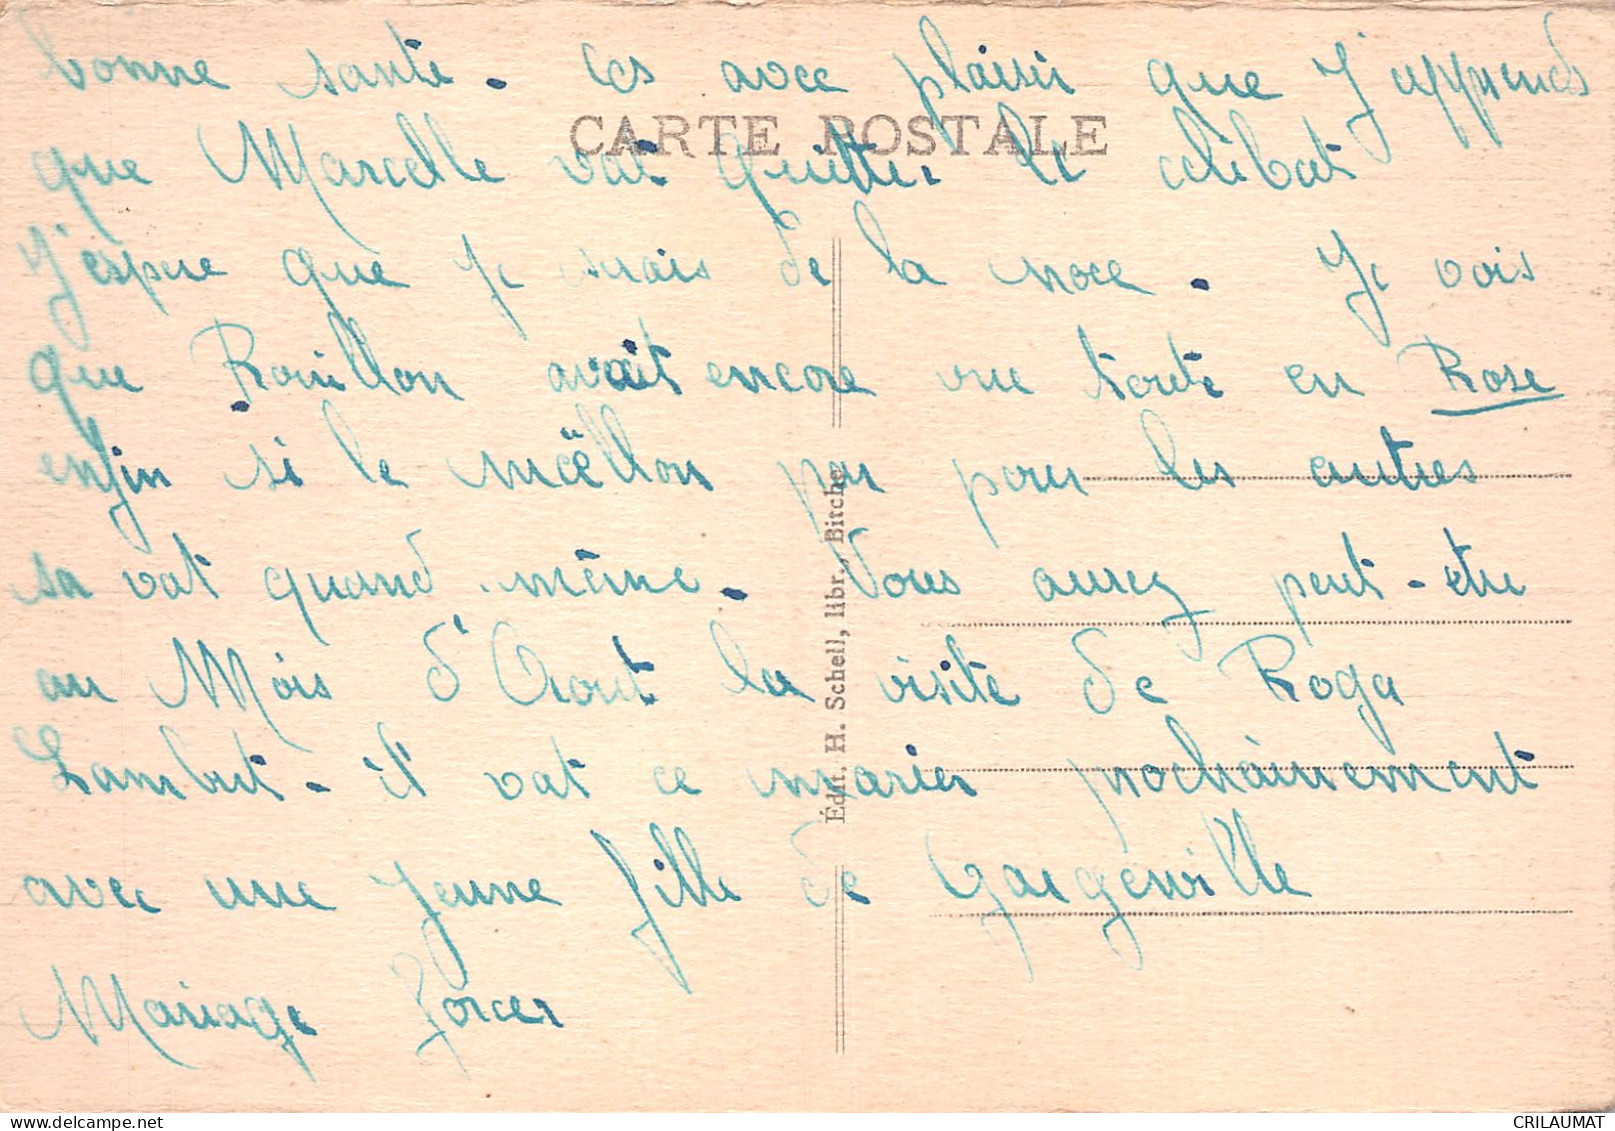 bonne santé. Ces avec plaisir que J'apprends
CARTE POSTALE
que Marcelle vat quitter le célibat
J'espère que je serais de la noce. Je vois
que Rouillon avait encore vue toute en Rose
enfin si le moëllon par pour les autres
sa vat quand même. Vous aurez peut-etre
au Mois d'Aout la visite de Roga
Lambert - il vat ce marier prochainement
avec une jeune fille de Gargenville
Mariage forcer
Édit. H. Schell, libr., Bitche
CRILAUMAT